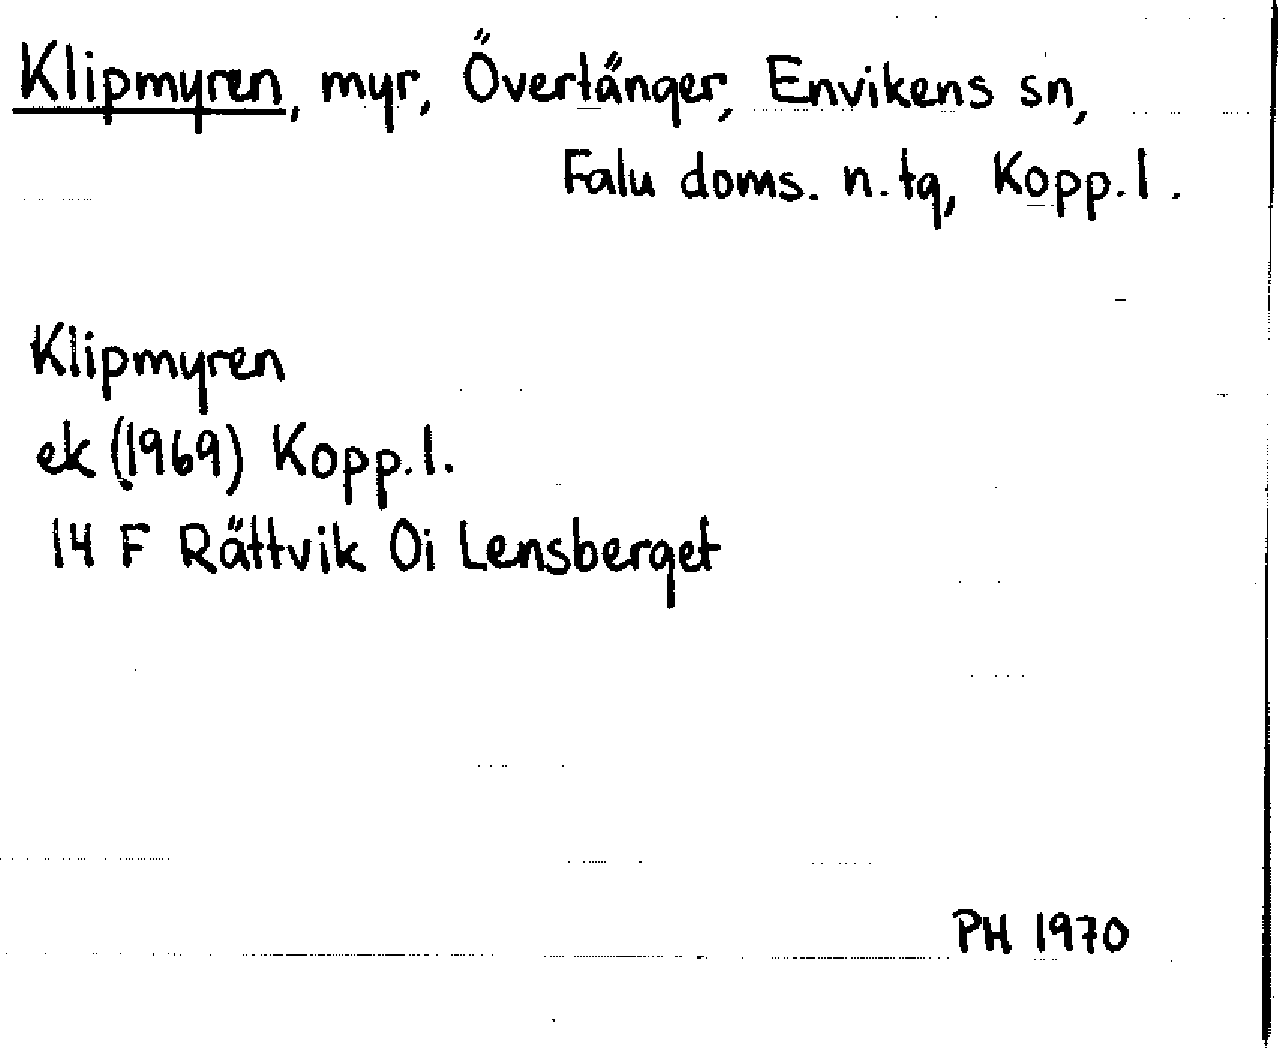 Klipmyren, myr, Övertänger, Envikens sn,
Falu doms. n. tg, Kopp. l.
Klipmyren
ek (1969) Kopp. l.
14 F Rättvik 0i Lensberget
PH 1970